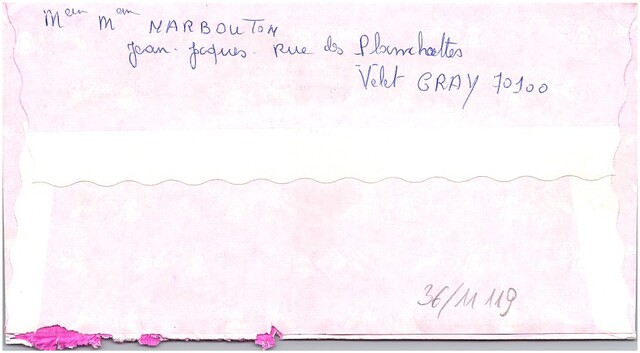 Meur Mem MARBOUTON
Jean-Jaques. Rue des Planchottes
Velet GRAY 70100
36/11 119